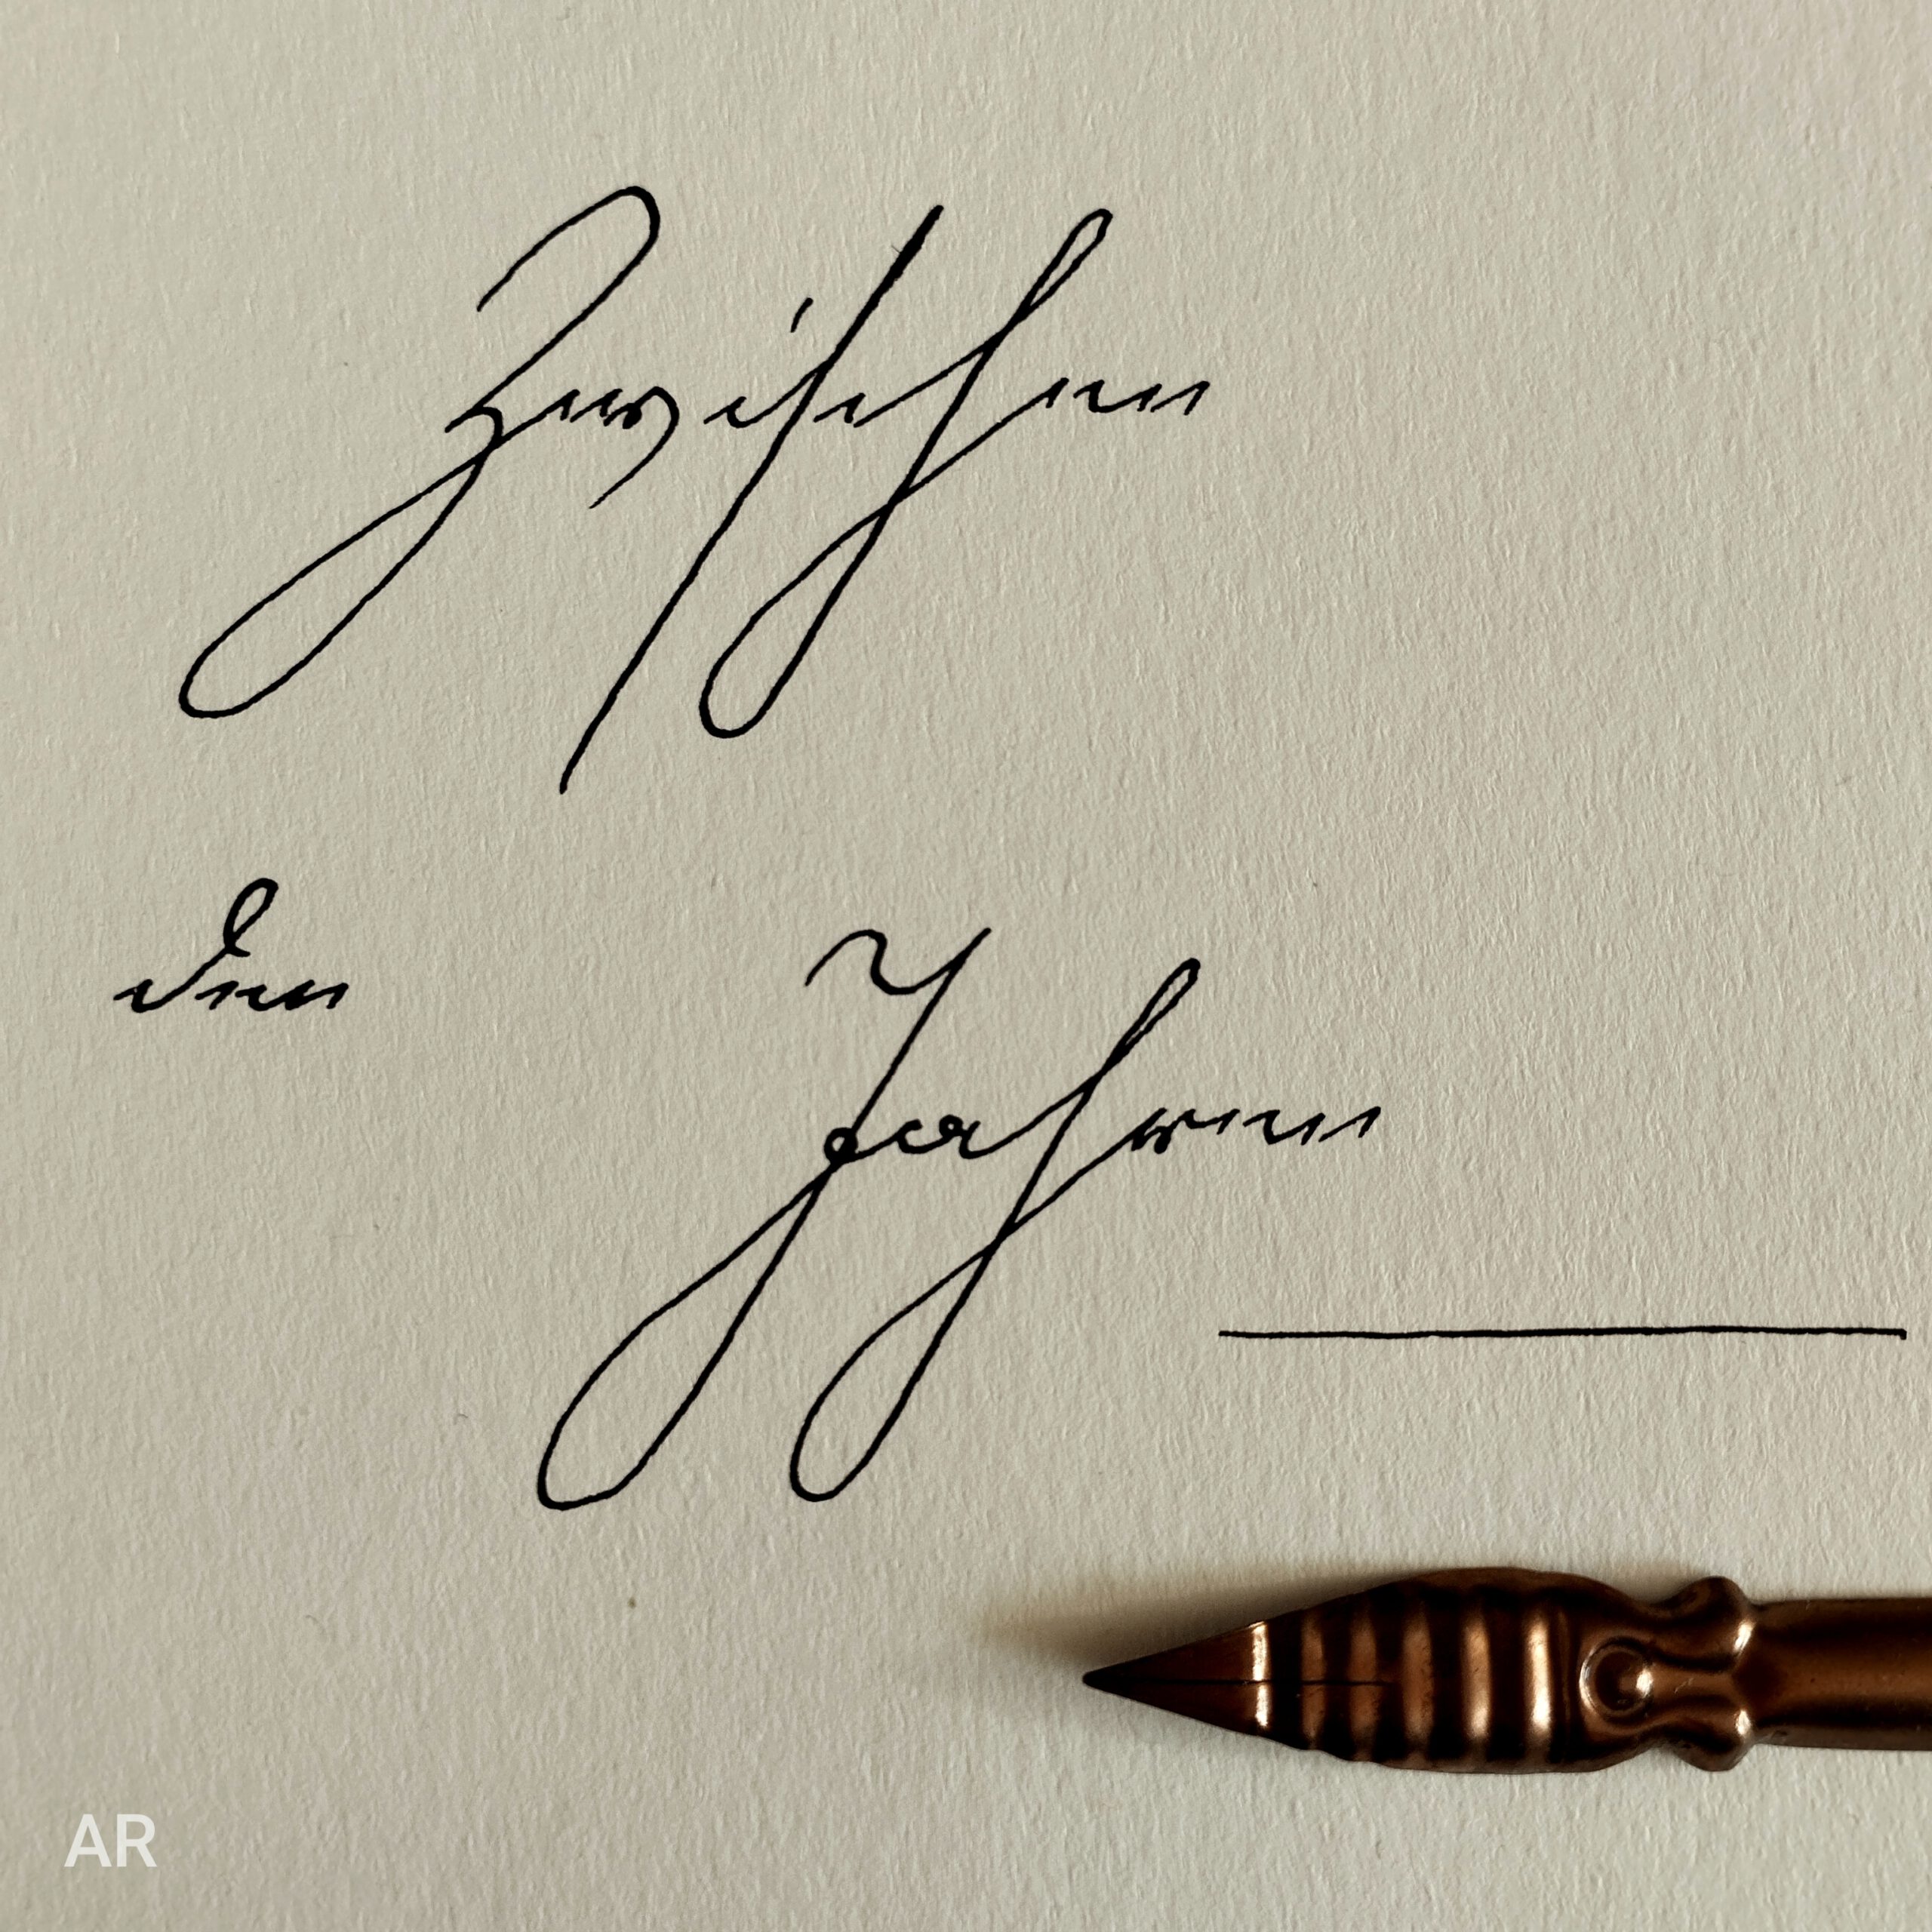 Zwischen
den Jahren
AR